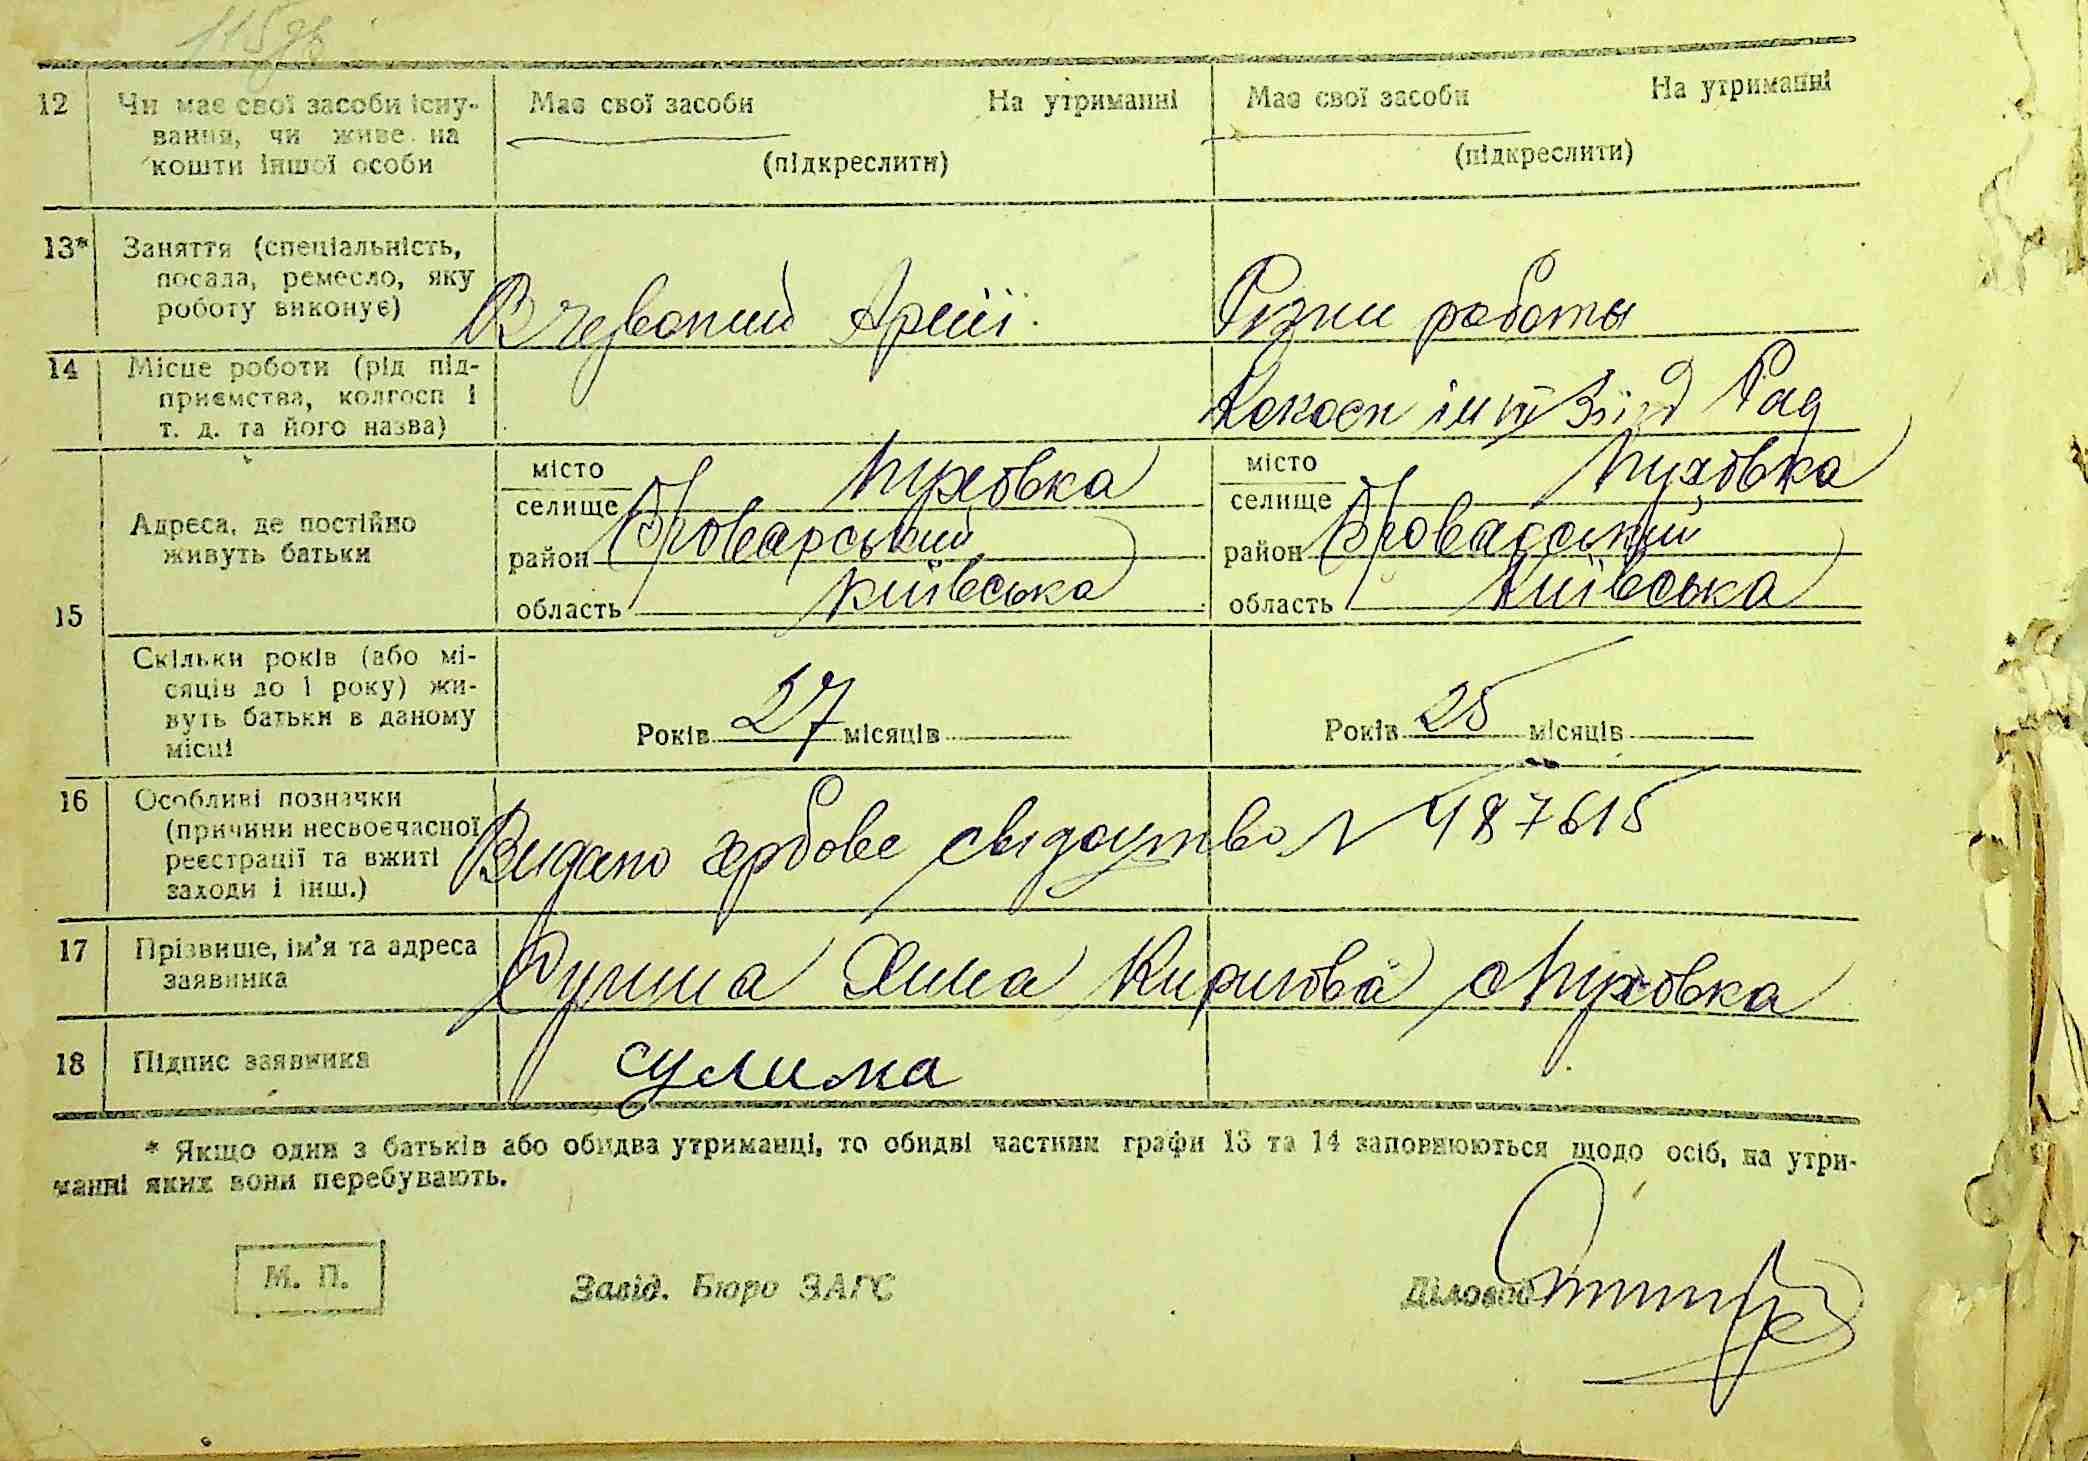 115дь
12 Чи має свої засоби існу-
вання, чи живе на
кошти іншої особи
Має свої засоби На утриманні
(підкреслити)
Має свої засоби На утриманні
(підкреслити)
13* Заняття (спеціальність,
посада, ремесло, яку
роботу виконує)
В червоний Армії.
Різни работы
14 Місце роботи (рід під-
приємства, колгосп і
т. д. та його назва)
Колхосп ім Зїзд Рад
15 Адреса, де постійно
живуть батьки
місто
селище Пуховка
район Броварський
область Київська
місто
селище Пуховка
район Броварський
область Київська
Скільки років (або мі-
сяців до 1 року) жи-
вуть батьки в даному
місці
Років 27 місяців
Років 25 місяців
16 Особливі позначки
(причини несвоєчасної
реєстрації та вжиті
заходи і інш.)
Видано гербове свідоцтво № 487615
17 Прізвище, ім'я та адреса
заявника
Сулима Кирилова с Пуховка
18 Підпис заявника
сулима
* Якщо один з батьків або обидва утриманці, то обидві частини графи 13 та 14 заповнюються щодо осіб, на утри-
манні яких вони перебувають.
М. П.
Завід. Бюро ЗАГС
Діловод